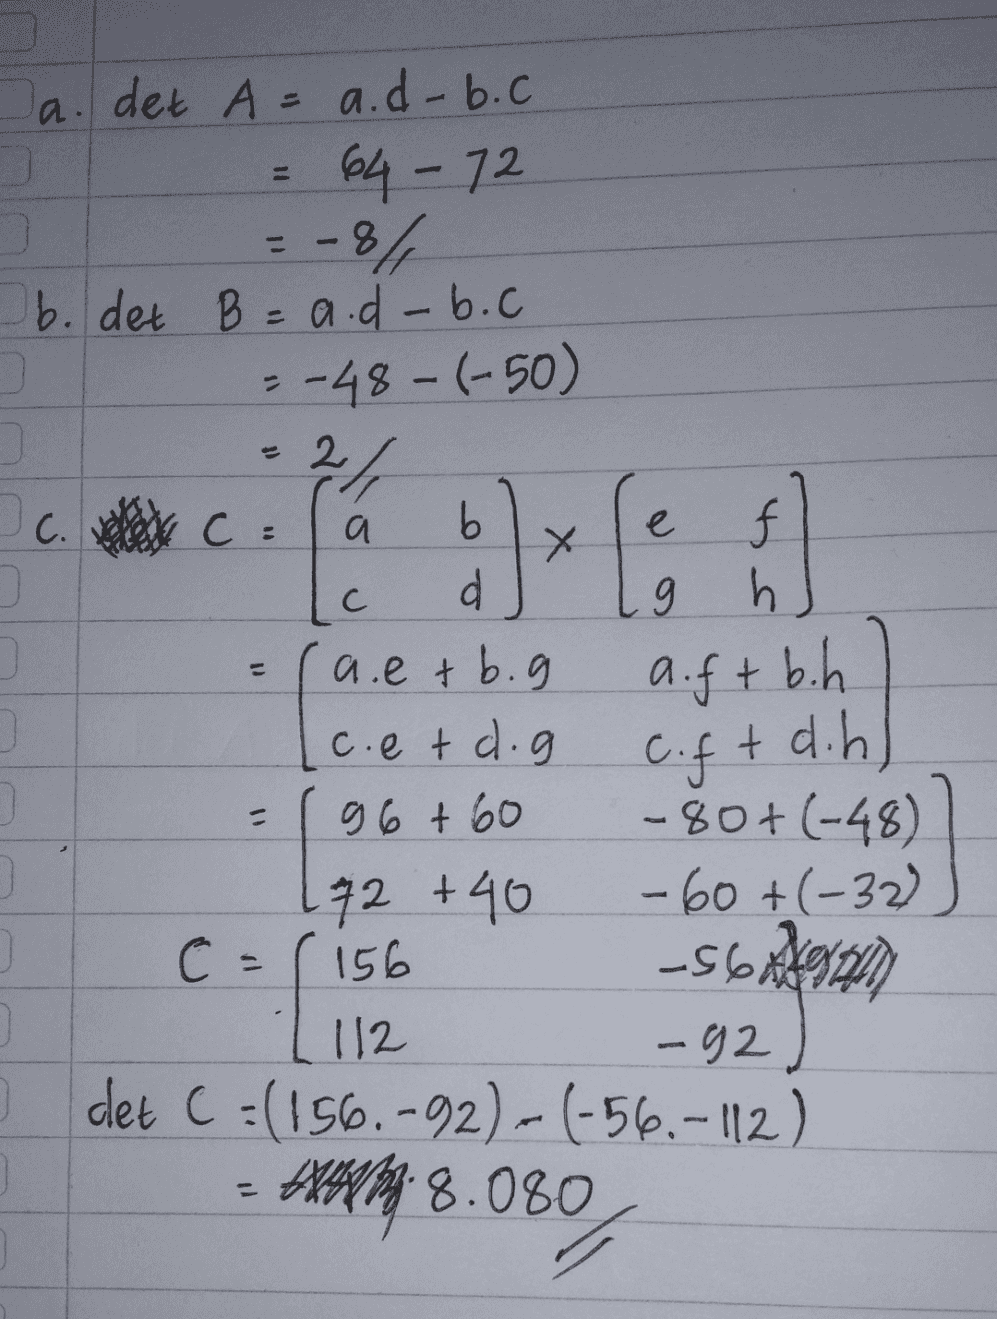 a. det A = a.d - b.c
= 64 - 72
= -8
b. det B = a.d - b.c
= -48 - (-50)
= 2
c. C = [a b] x [e f]
[c d] [g h]
= [a.e + b.g a.f + b.h]
[c.e + d.g c.f + d.h]
= [96 + 60 -80 + (-48)]
[72 + 40 -60 + (-32)]
C = [156 -56]
[112 -92]
det C = (156.-92) - (-56.-112)
= 8.080